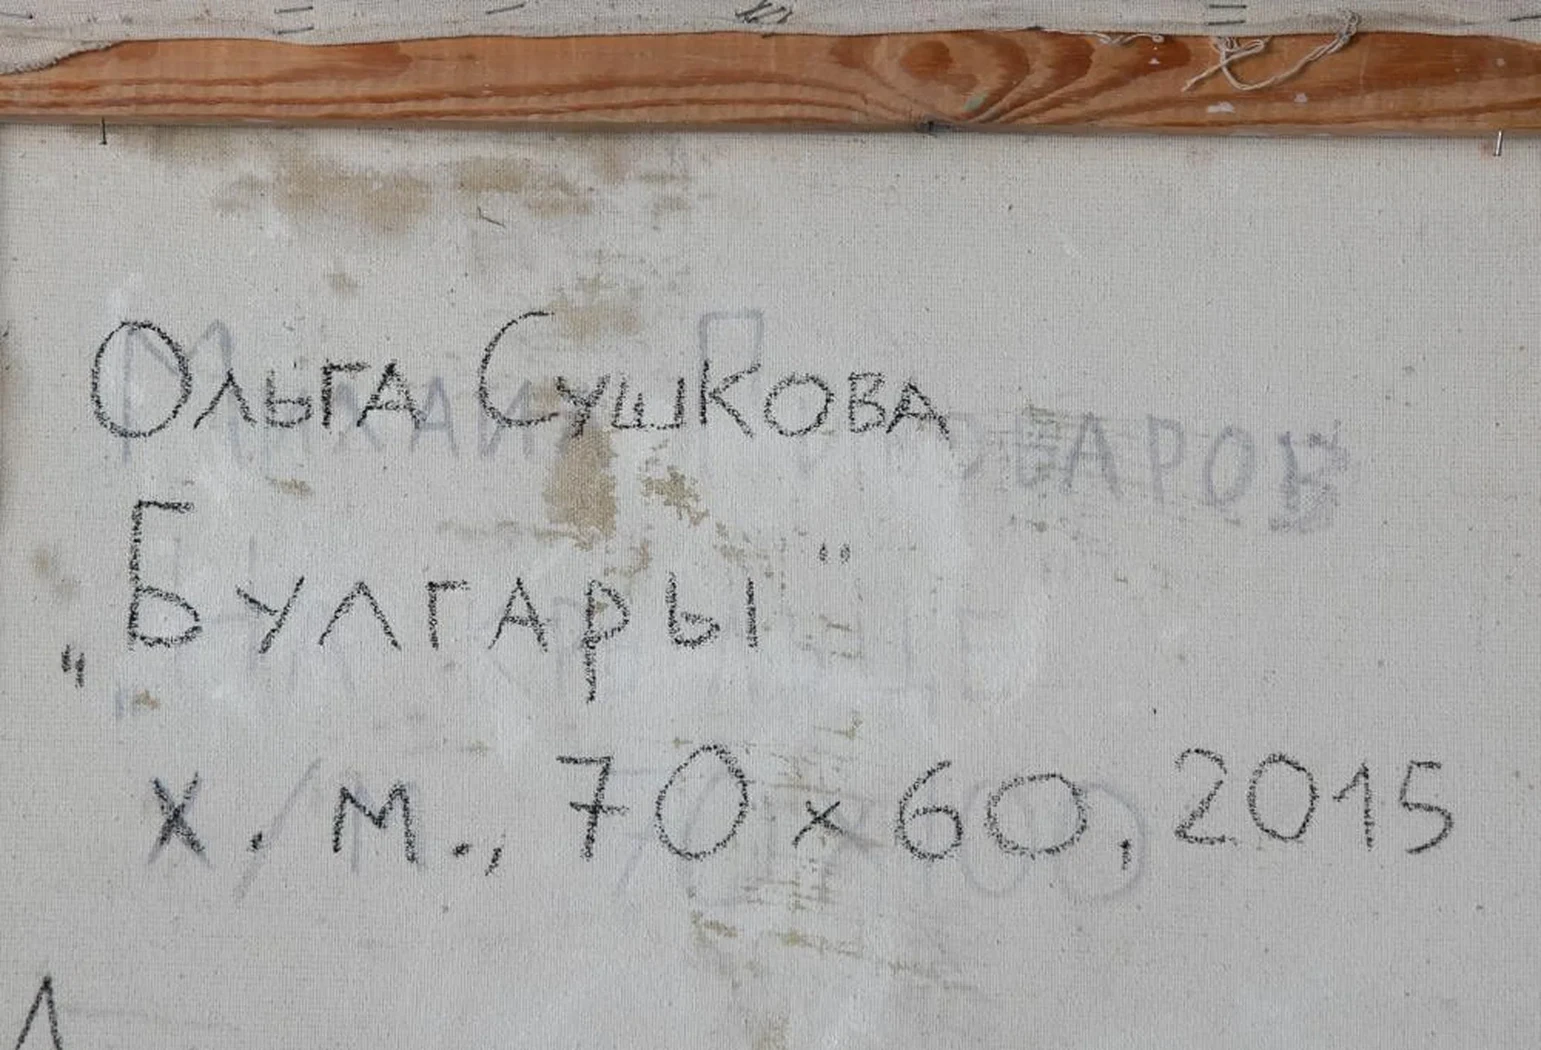 Ольга Сушкова
„Булгары"
х. м., 70 x 60, 2015